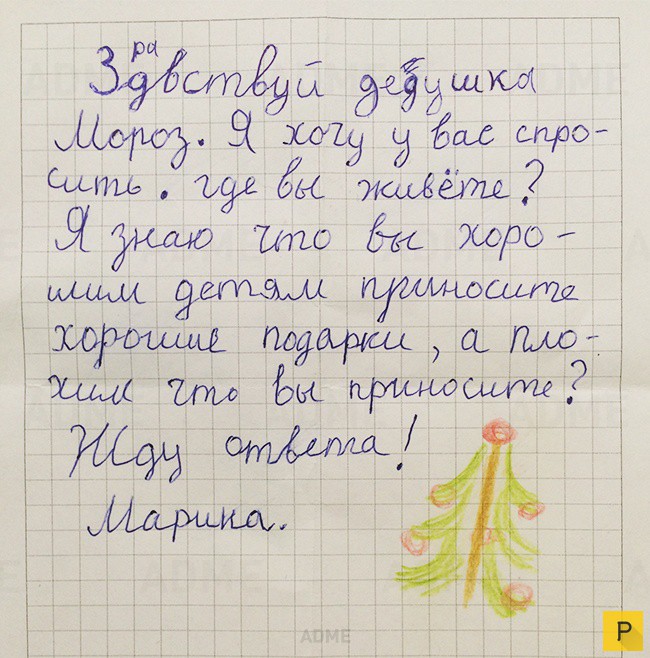 Здравствуй дедушка
Мороз. Я хочу у вас спро-
сить. где вы живёте?
Я знаю что вы хоро-
шим детям приносите
хорошие подарки, а пло-
хим что вы приносите?
Жду ответа!
Марина.
ADME
P